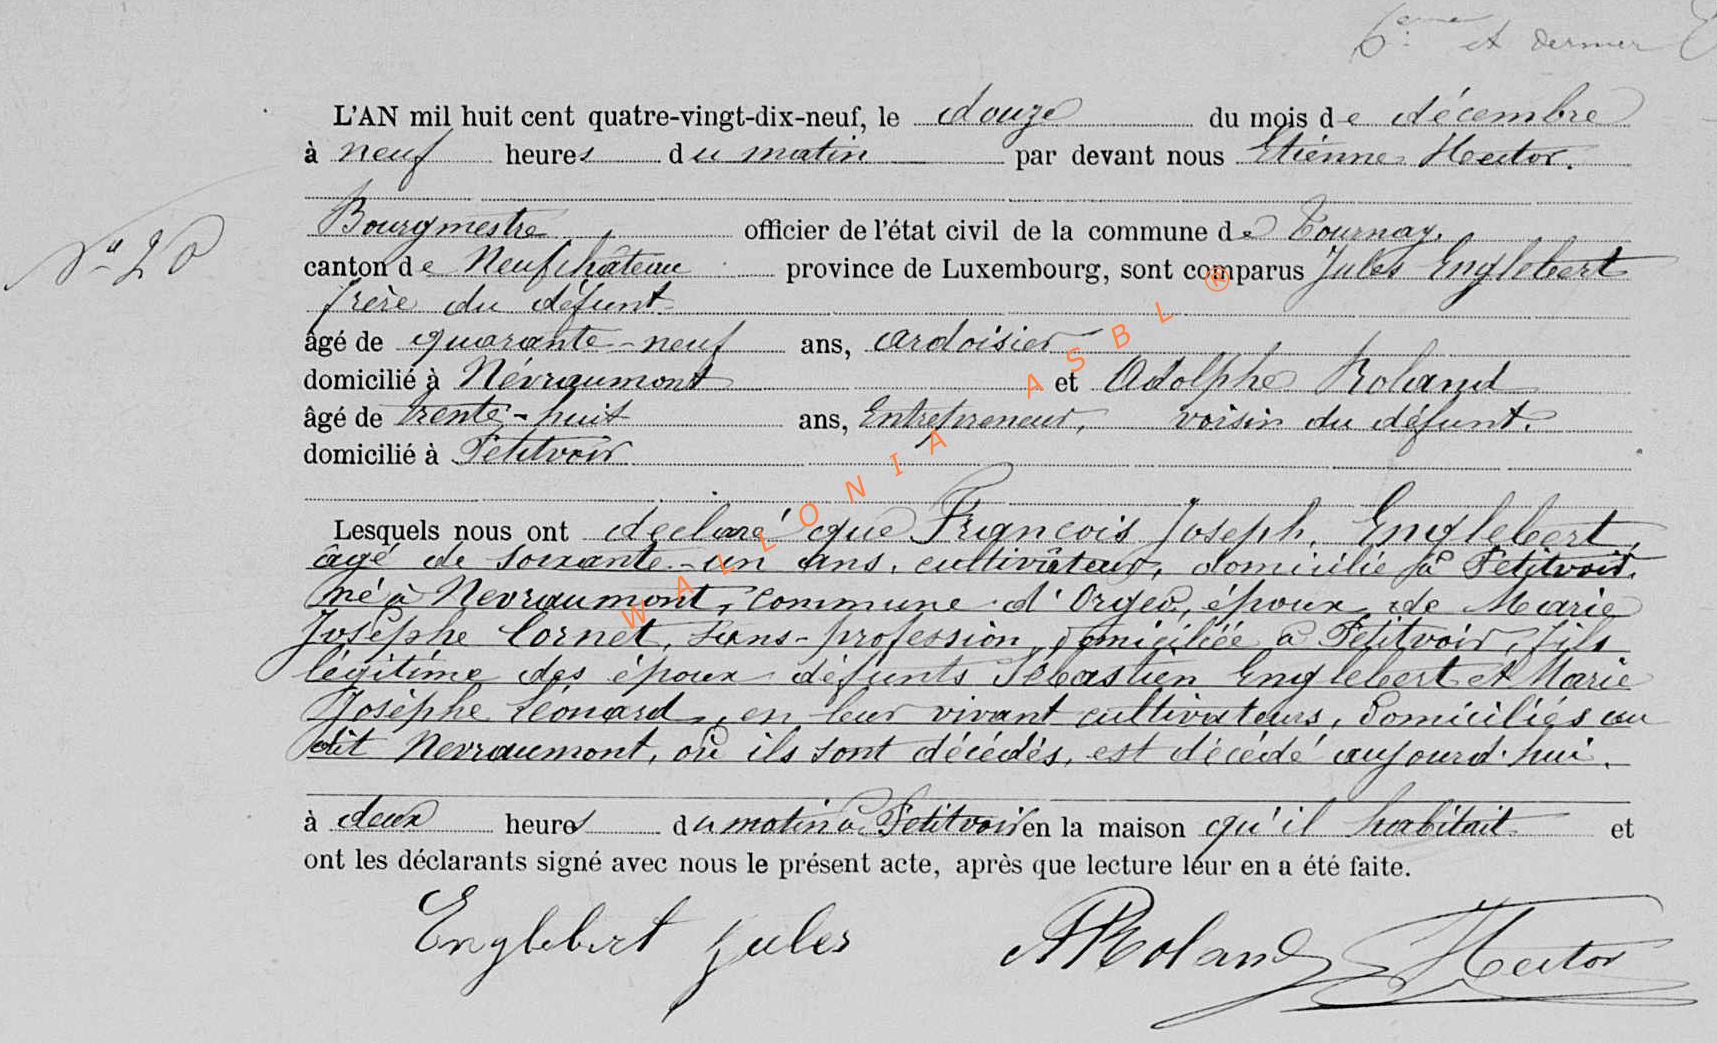 6ème et dernier
L'AN mil huit cent quatre-vingt-dix-neuf, le douze du mois de décembre
à neuf heures du matin par devant nous Etienne Hector.
N° 20
Bourgmestre officier de l'état civil de la commune de Tournay.
canton de Neufchâteau province de Luxembourg, sont comparus Jules Englebert
frère du défunt
âgé de quarante-neuf ans, ardoisier
domicilié à Névraumont et Adolphe Roland
âgé de trente-huit ans, Entrepreneur, voisin du défunt.
domicilié à Petitvoir
Lesquels nous ont déclaré que François Joseph Englebert,
âgé de soixante-un ans, cultivateur, domicilié à Petitvoir.
né à Nevraumont, commune d'Orgeo, époux de Marie
Josèphe Cornet, sans-profession, domiciliée à Petitvoir, fils
légitime des époux défunts Sébastien Englebert et Marie
Josèphe Léonard, en leur vivant cultivateurs, domiciliés au
dit Nevraumont, où ils sont décédés, est décédé aujourd'hui.
à deux heures du matin à Petitvoir en la maison qu'il habitait et
ont les déclarants signé avec nous le présent acte, après que lecture leur en a été faite.
Englebert Jules A Roland Hector
WALLONIA ASBL ®